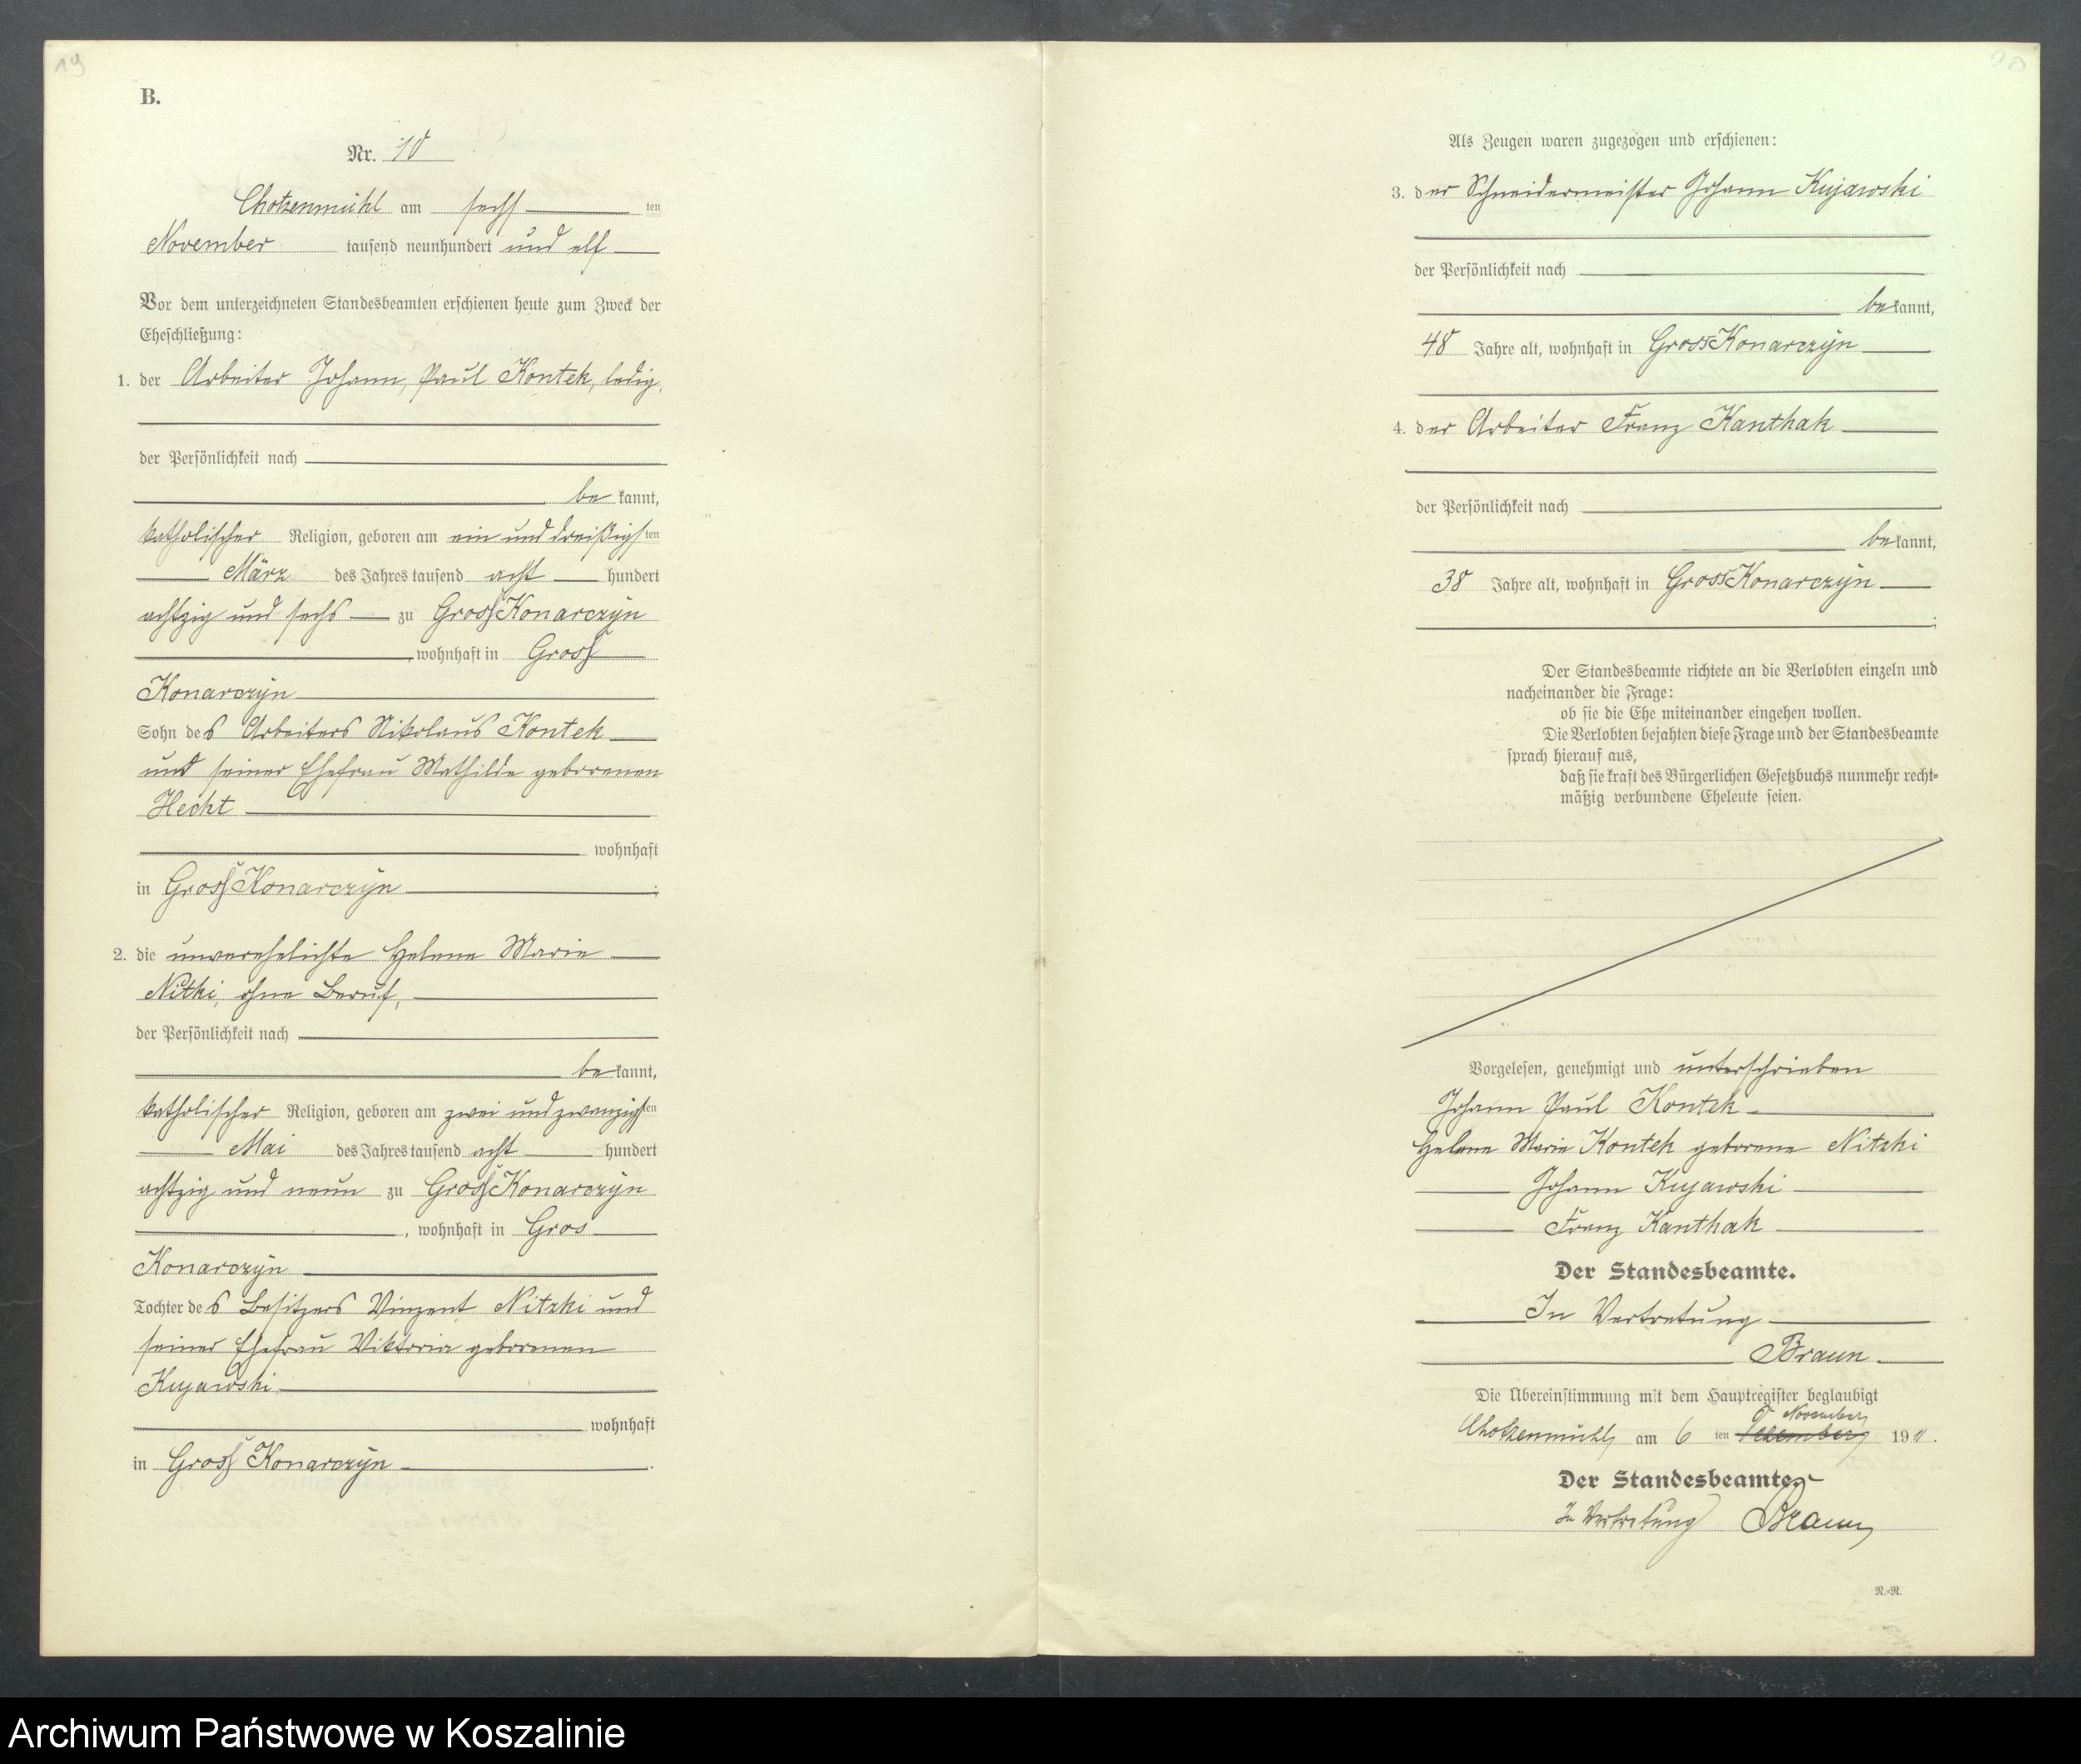 19
B.
Nr. 10
Chotzenmühl am sechs ten
November tausend neunhundert und elf
Vor dem unterzeichneten Standesbeamten erschienen heute zum Zweck der
Eheschließung:
1. der Arbeiter Johann, Paul Kontek, ledig,
der Persönlichkeit nach
be kannt,
katholischer Religion, geboren am ein und dreißigsten
März des Jahres tausend acht hundert
achtzig und sechs zu Gross Konarczyn
, wohnhaft in Gross
Konarczyn
Sohn des Arbeiters Nikolaus Kontek
und seiner Ehefrau Mathilde geborenen
Hecht
wohnhaft
in Gross Konarczyn ;
2. die unverehelichte Helene Marie
Nitzki, ohne Beruf,
der Persönlichkeit nach
be kannt,
katholischer Religion, geboren am zwei und zwanzigsten
Mai des Jahres tausend acht hundert
achtzig und neun zu Gross Konarczyn
, wohnhaft in Gros
Konarczyn
Tochter des Besitzers Vinzent Nitzki und
seiner Ehefrau Viktoria geborenen
Kujawski
wohnhaft
in Gross Konarczyn .
20
Als Zeugen waren zugezogen und erschienen:
3. der Schneidermeister Johann Kujawski
der Persönlichkeit nach
bekannt,
48 Jahre alt, wohnhaft in Gross Konarczyn
4. der Arbeiter Franz Kanthak
der Persönlichkeit nach
bekannt,
38 Jahre alt, wohnhaft in Gross Konarczyn
;
Der Standesbeamte richtete an die Verlobten einzeln und
nacheinander die Frage:
ob sie die Ehe miteinander eingehen wollen.
Die Verlobten bejahten diese Frage und der Standesbeamte
sprach hierauf aus,
daß sie kraft des Bürgerlichen Gesetzbuchs nunmehr recht-
mäßig verbundene Eheleute seien.
Vorgelesen, genehmigt und unterschrieben
Johann Paul Kontek
Helene Marie Kontek geborene Nitzki
Johann Kujawski
Franz Kanthak
Der Standesbeamte.
In Vertretung
Braun
Die Übereinstimmung mit dem Hauptregister beglaubigt
November
Chotzenmühl am 6 ten Dezember 1911.
Der Standesbeamte.
In Vertretung Braun
N.-R.
Archiwum Państwowe w Koszalinie